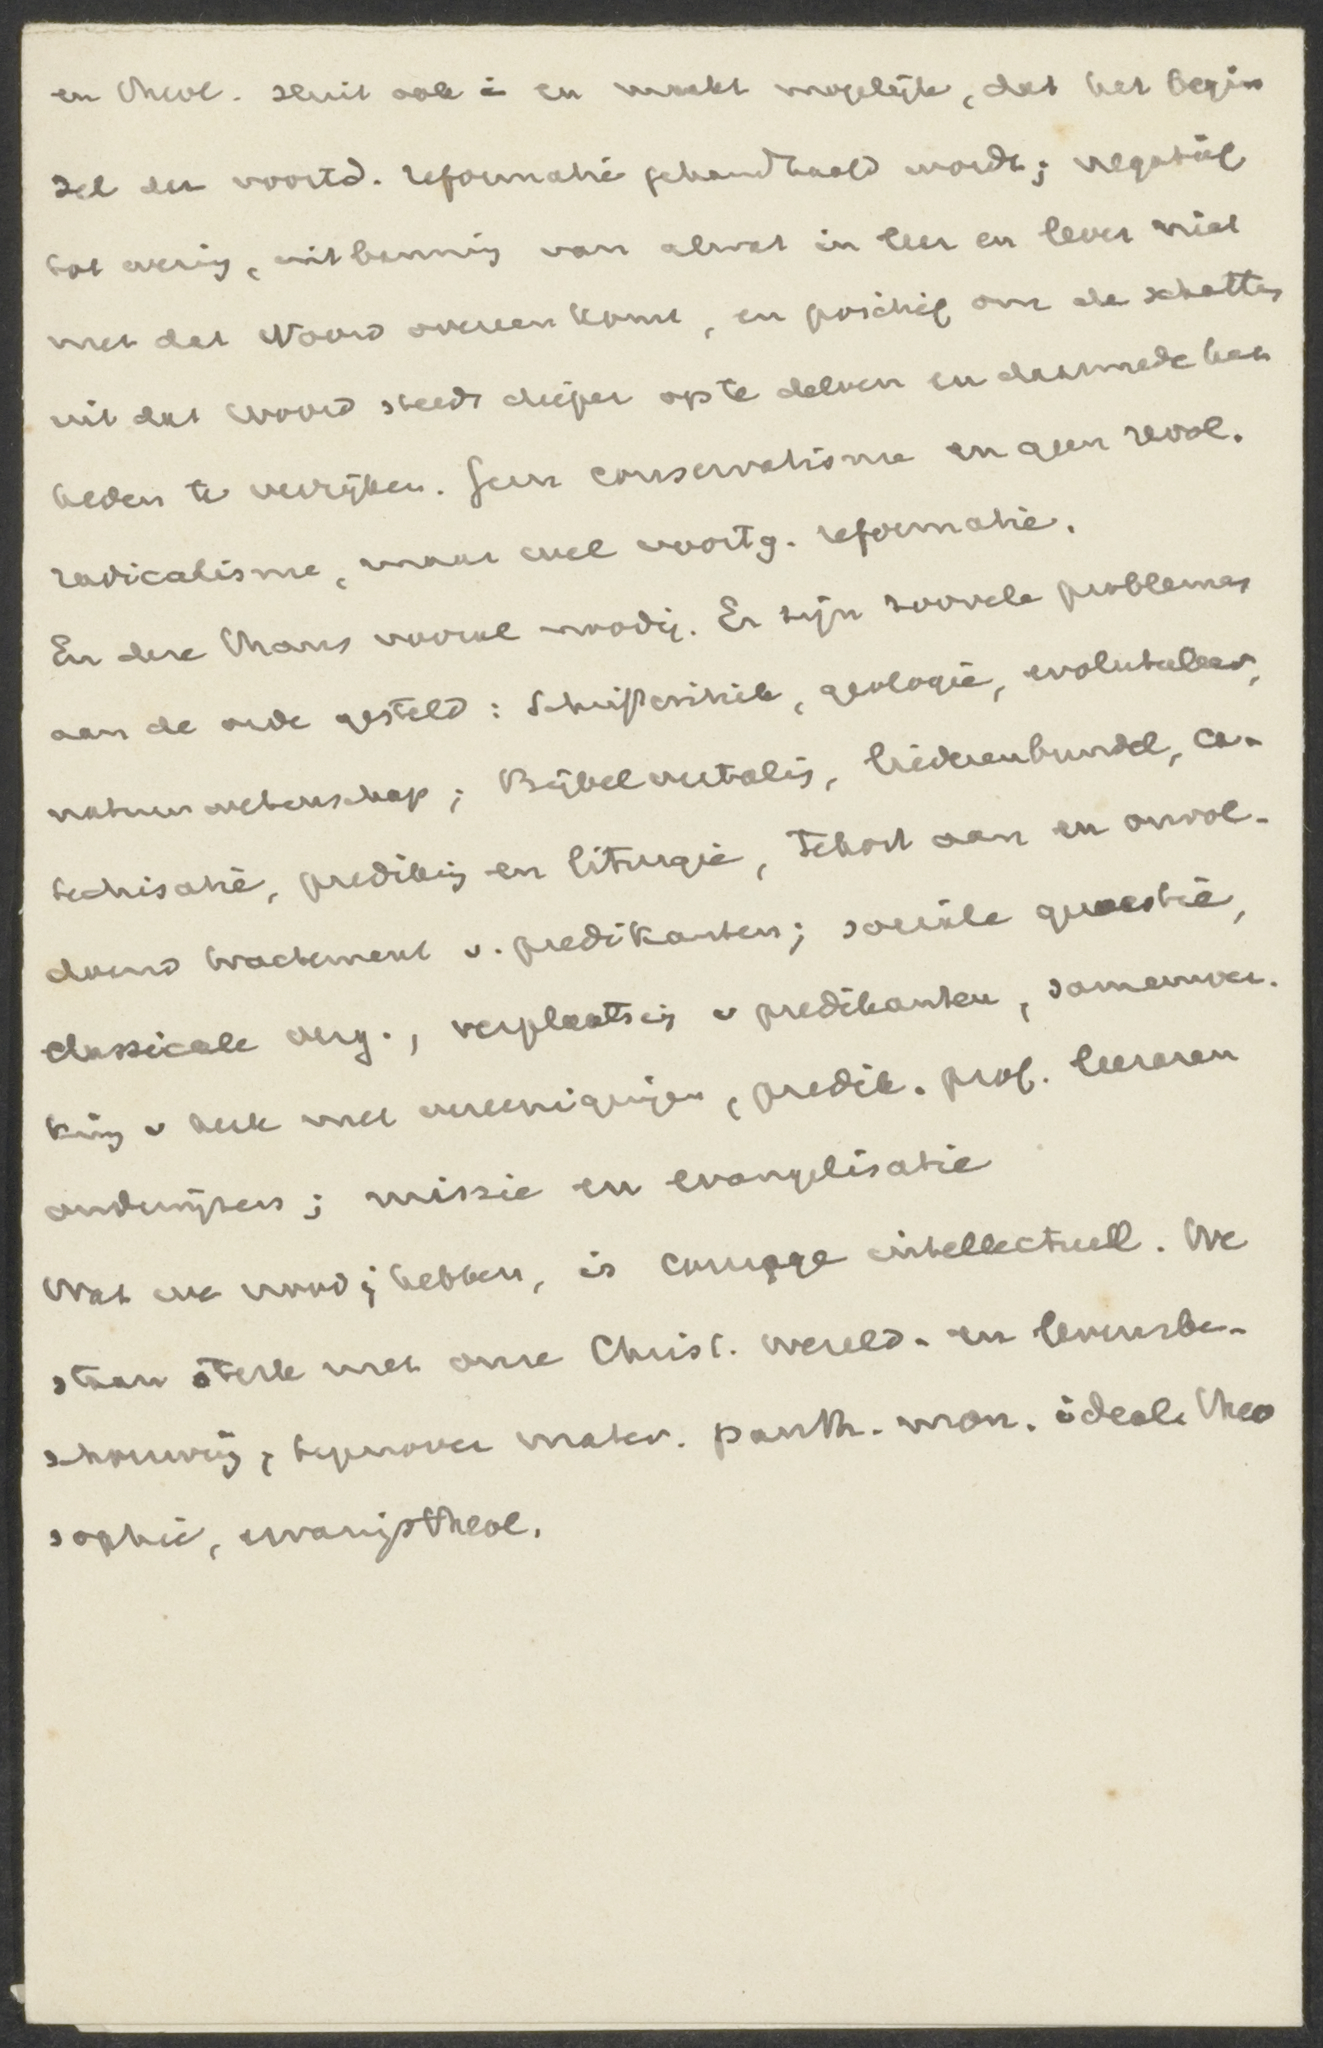 en theol. sluit ook i en maakt mogelijk, dat het begin
sel der voortd. reformatie gehandhaafd wordt; negatief
tot wering, uitbanning van alwat in leer en leven niet
met dat Woord overeenkomt, en positief om de schatten
uit dat woord steeds dieper op te delven en daarmede het
heden te verrijken. Geen conservatisme en geen revol.
radicalisme, maar wel voortg. reformatie.
En deze thans vooral noodig. Er zijn zoovele problemen
aan de orde gesteld: Schriftcritiek, geologie, evolutieleer,
natuurwetenschap; Bijbelvertaling, liederenbundel, ca-
techisatie, prediking en liturgie, tekort aan en onvol-
doend tractement v. predikanten; sociale quaestie,
classicale verg., verplaatsing v predikanten, samenwer.
king v kerk met vereenigingen, predik. prof. leeraren
onderwijzers; missie en evangelisatie
Wat we noodig hebben, is courage intellectuell. We
staan sterk met onze Christ. wereld- en levensbe-
schouwing, tegenover mater. panth. mon. ideal. theo
sophie, ervaringstheol.